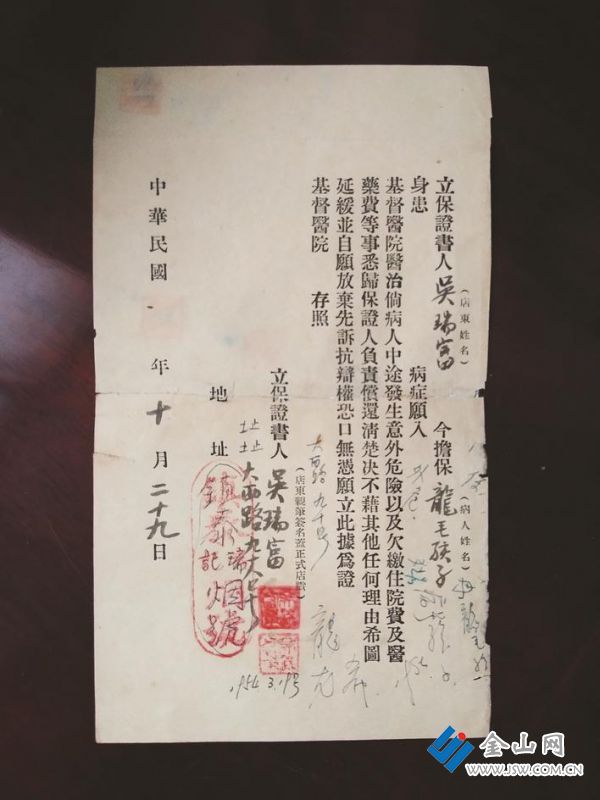 立保證書人吳瑞富 今擔保龍毛孩子
(店東姓名) (病人姓名)
身患 病症願入
基督醫院醫治倘病人中途發生意外危險以及欠繳住院費及醫
藥費等事悉歸保證人負責償還清楚決不藉其他任何理由希圖
延緩並自願放棄先訴抗辯權恐口無憑願立此據爲證
基督醫院 存照
大西路九十号
立保證書人 吳瑞富
(店東親筆簽名蓋正式店號)
地址 大西路九十号
鎮泰瑞記烟號
中華民國 年十月二十九日
金山网
WWW.JSW.COM.CN